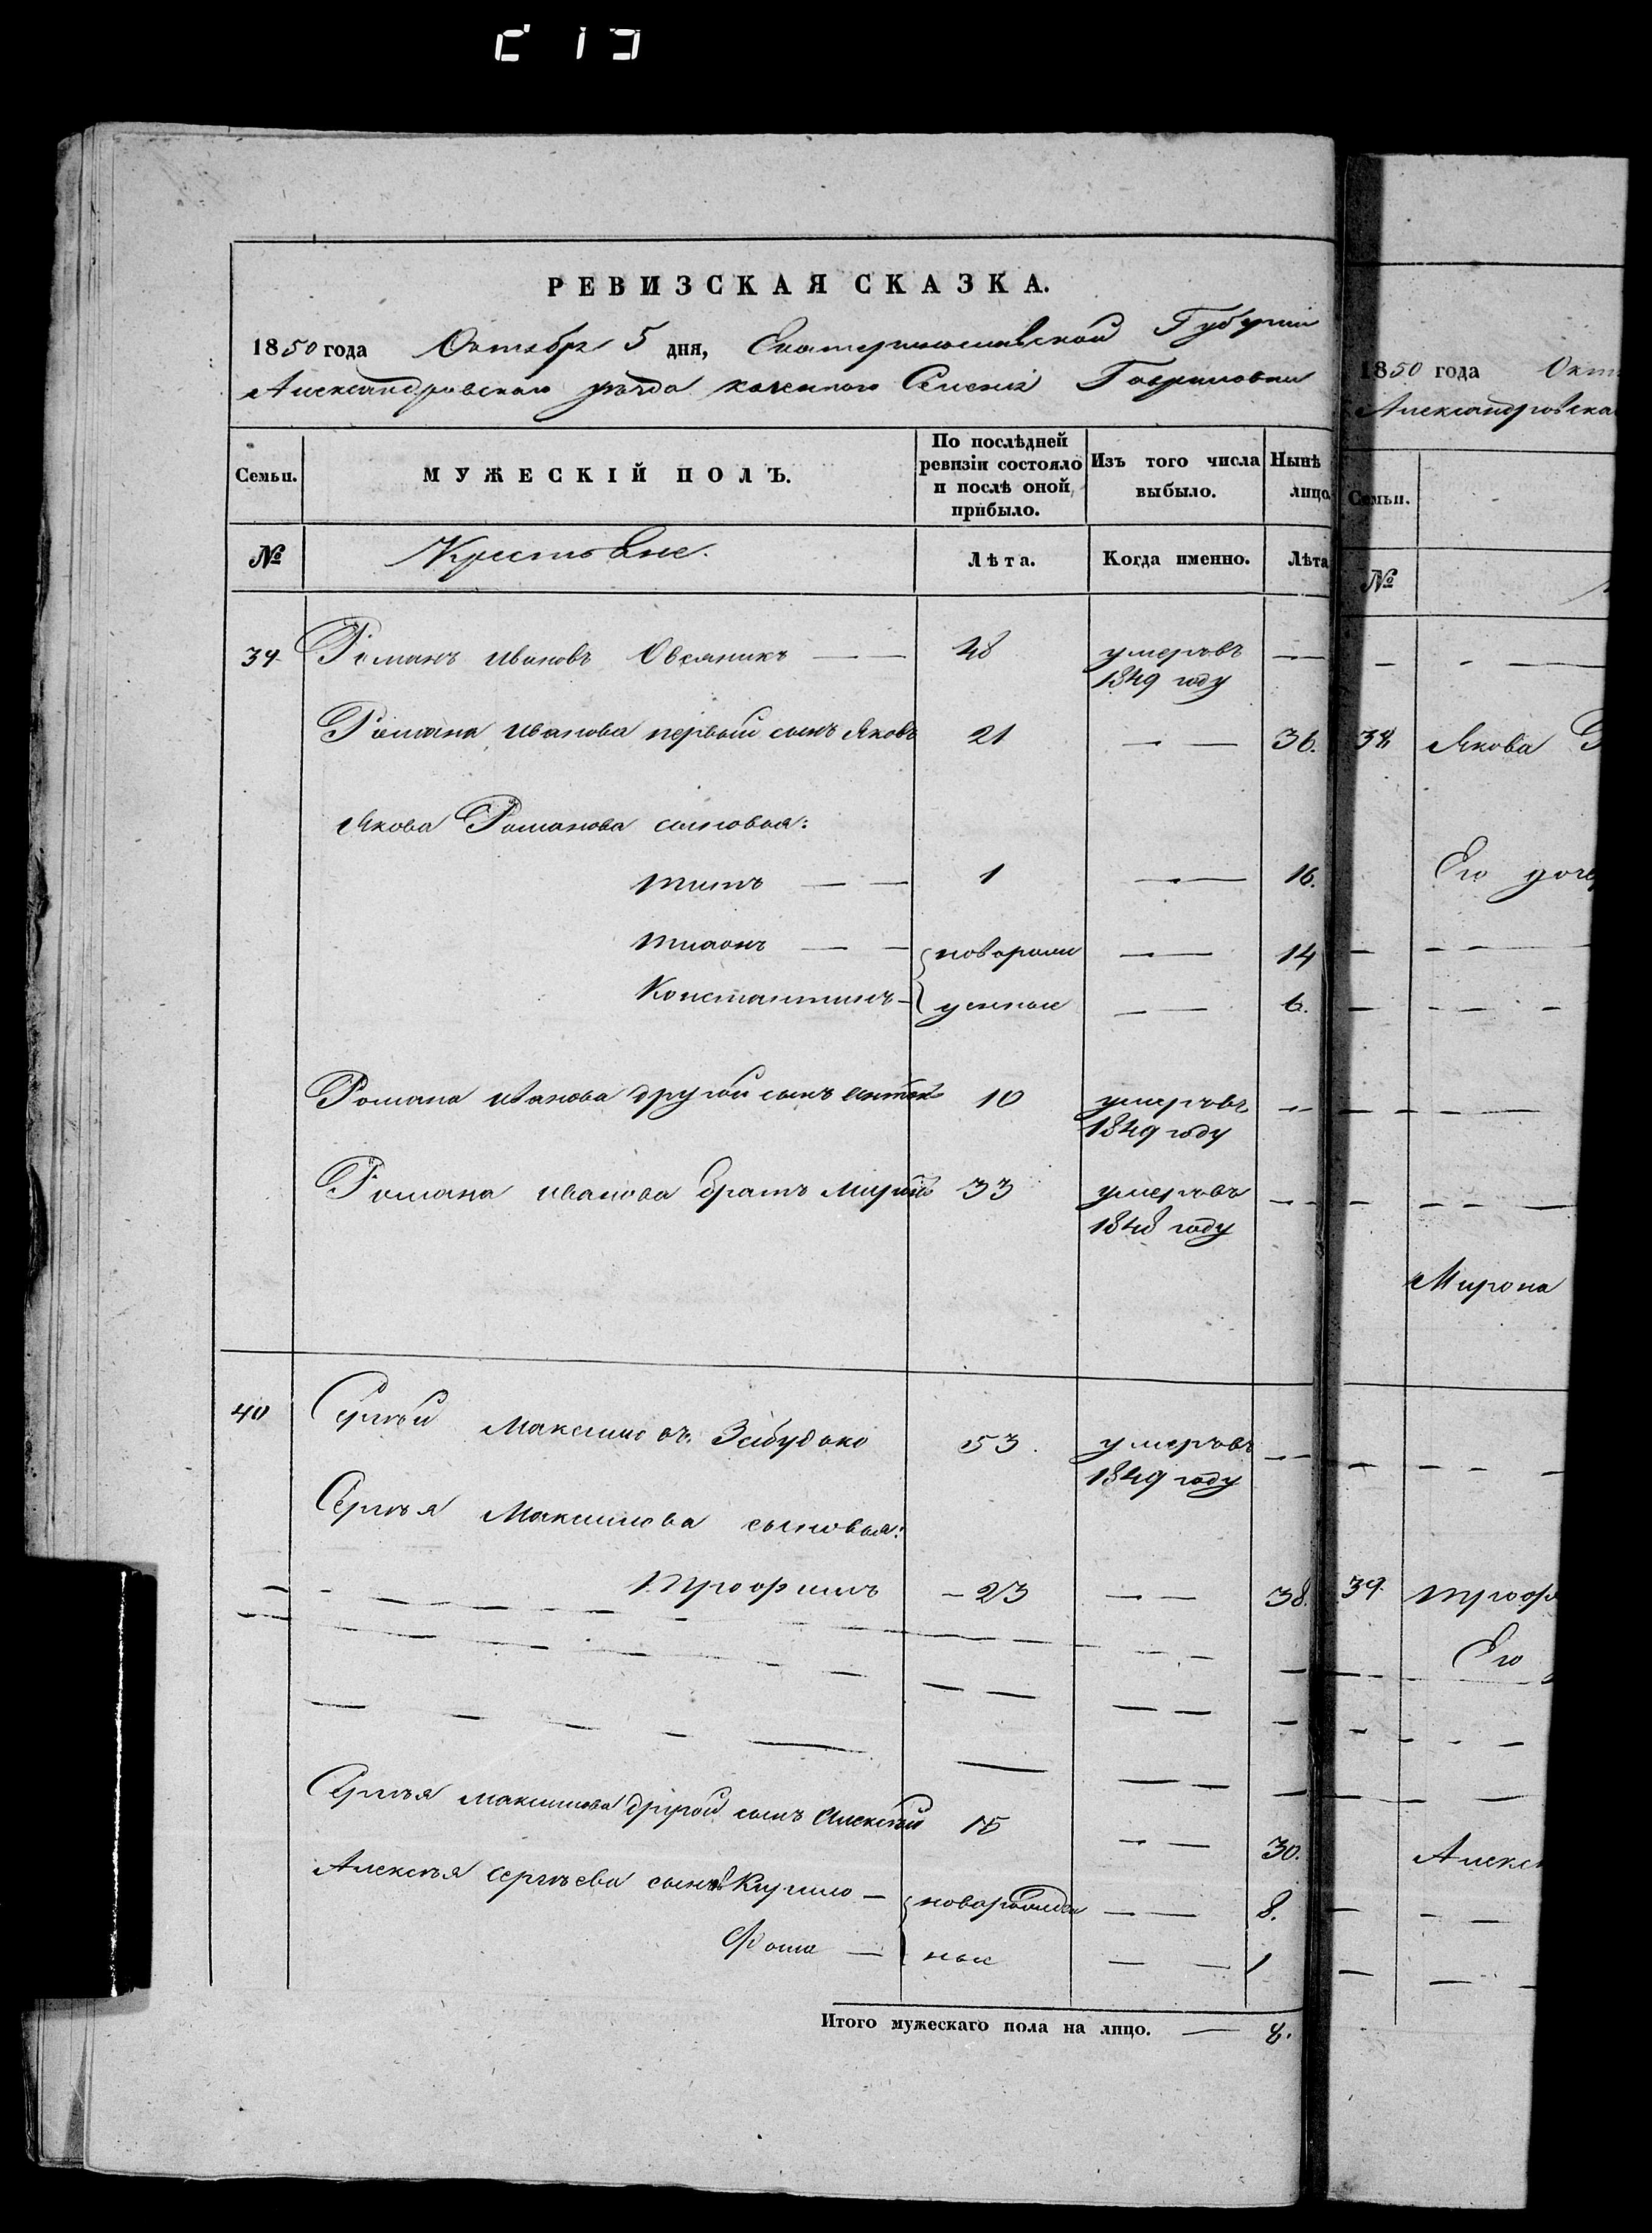 РЕВИЗСКАЯ СКАЗКА.
1850 года Октября 5 дня, Екатеринославской Губернии
Александровскаго уѣзда казеннаго Селенія Гавриловки
Семьи. МУЖЕСКІЙ ПОЛЪ. По послѣдней ревизіи состояло и послѣ оной прибыло. Изъ того числа выбыло. Нынѣ лицо
№ Крестьяне. Лѣта. Когда именно. Лѣта
39 Романъ Ивановъ Овсяникъ — — 48 умеръ въ — —
1849 году
Романа Иванова первый сынъ Яковъ 21 — — 36.
Якова Романова сыновья:
Титъ — — 1 — — 16.
Тихонъ — — новорож — — 14
Константинъ — денные — — 6.
Романа Иванова другой сынъ Антонъ 10 умеръ въ — —
1849 году
Романа Иванова братъ Миронъ 33 умеръ въ — —
1848 году
40 Сергѣй Максимовъ 53. умеръ въ — —
1849 году
Сергѣя Максимова сыновья:
Трофимъ — 23 — — 38.
Сергѣя Максимова другой сынъ Алексѣй 15 — — 30.
Алексѣя Сергѣева сыновья Кирило — новорожден — — 8.
Фома — ные — — 1
Итого мужескаго пола на лицо. — 8.
1850 года Окт
Александровска
Семьи.
№
38 Якова
Его дочер
Мирона
39. Троф
Его
Алекс